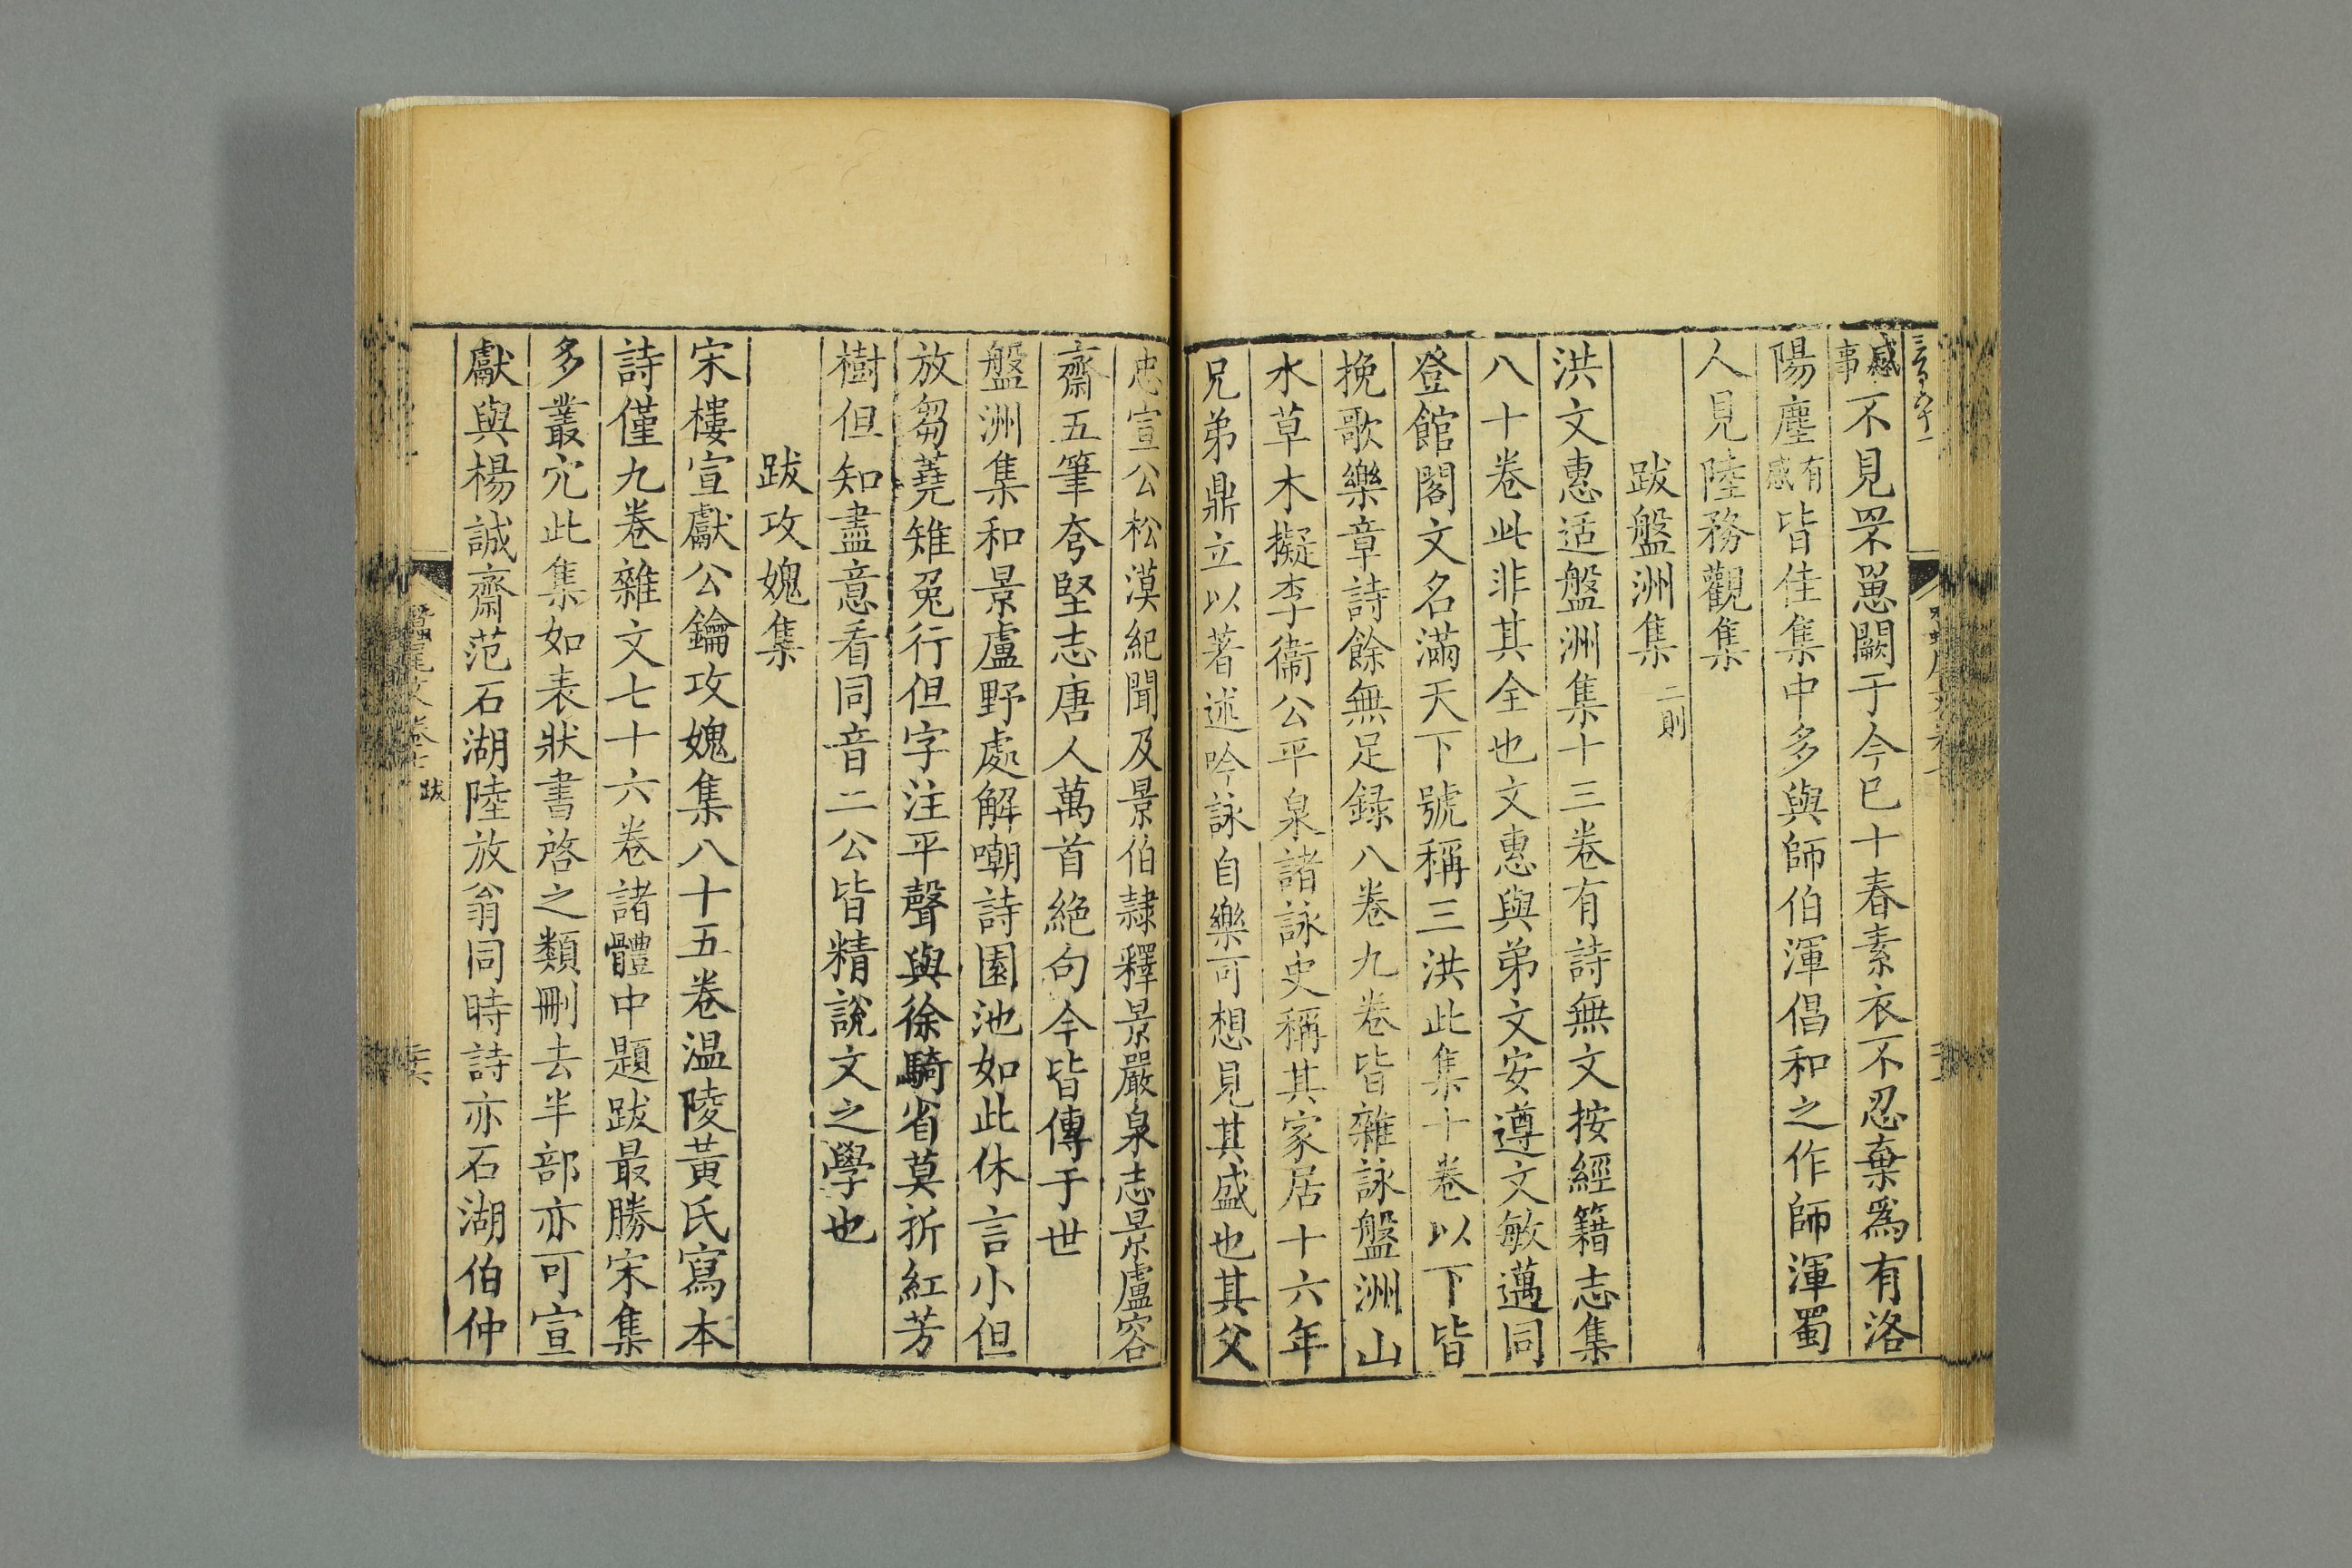 感事不見罘罳闕于今已十春素衣不忍棄爲有洛
陽塵有感皆佳集中多與師伯渾倡和之作師渾蜀
人見陸務觀集
跋盤洲集二則
洪文惠适盤洲集十三卷有詩無文按經籍志集
八十卷此非其全也文惠與弟文安遵文敏邁同
登館閣文名滿天下號稱三洪此集十卷以下皆
挽歌樂章詩餘無足錄八卷九卷皆雜詠盤洲山
水草木擬李衞公平泉諸詠史稱其家居十六年
兄弟鼎立以著述吟詠自樂可想見其盛也其父
忠宣公松漠紀聞及景伯隸釋景嚴泉志景盧容
齋五筆夸堅志唐人萬首絕句今皆傳于世
盤洲集和景盧野處解嘲詩園池如此休言小但
放芻蕘雉兔行但字注平聲與徐騎省莫折紅芳
樹但知盡意看同音二公皆精說文之學也
跋攻媿集
宋樓宣獻公鑰攻媿集八十五卷温陵黃氏寫本
詩僅九卷雜文七十六卷諸體中題跋最勝宋集
多叢冗此集如表狀書啓之類刪去半部亦可宣
獻與楊誠齋范石湖陸放翁同時詩亦石湖伯仲
跋